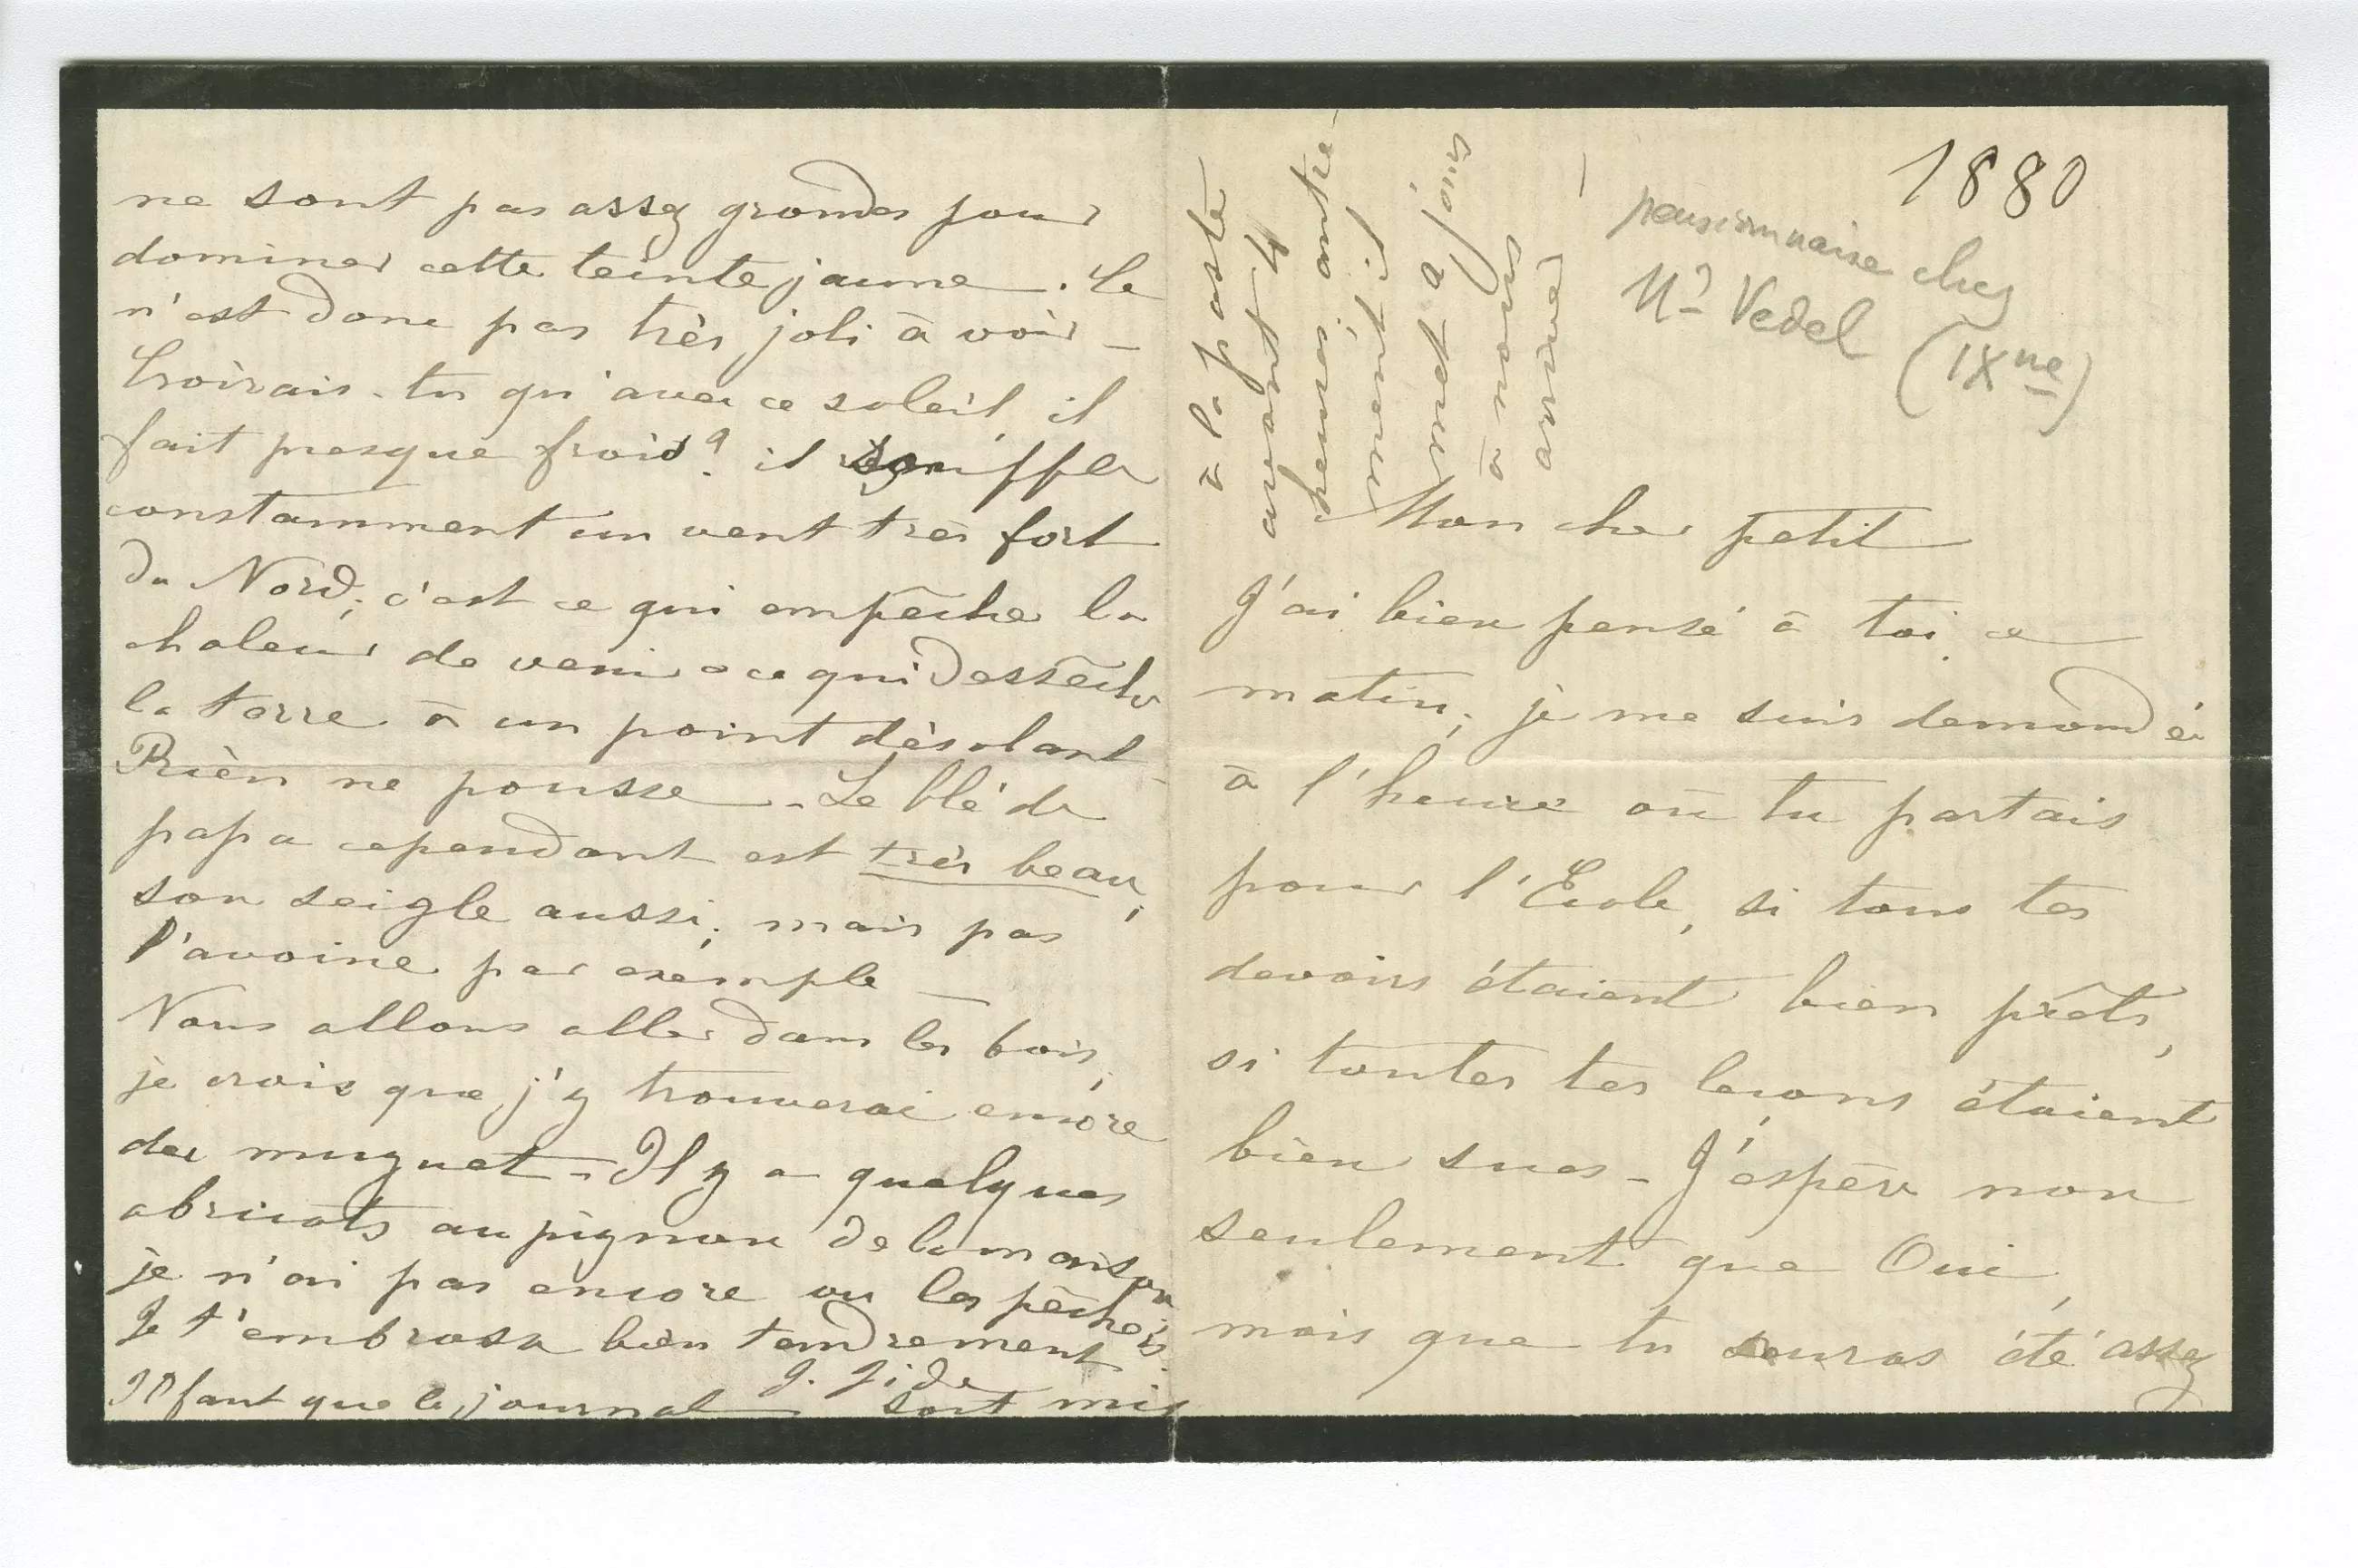 1880
pensionnaise chez
Mr Vedel (IXme)
Mon cher petit
J'ai bien pensé à toi ce
matin; je me suis demandé
à l'heure où tu partais
pour l'Ecole, si tous tes
devoirs étaient bien prêts,
si toutes tes leçons étaient
bien sues - J'espère non
seulement que Oui,
mais que tu auras été assez
ne sont pas assez grandes pour
dominer cette teinte jaune. Ce
n'est donc pas très joli à voir -
Croirais-tu qu'avec ce soleil, il
fait presque froid? il souffle
constamment un vent très fort
du Nord; c'est ce qui empêche la
chaleur de venir & ce qui dessèche
la terre à un point désolant -
Rien ne pousse - Le blé de
papa cependant est très beau,
son seigle aussi; mais pas
l'avoine par exemple -
Nous allons aller dans les bois;
je crois que j'y trouverai encore
du muguet - Il y a quelques
abricots au pignon de la maison
je n'ai pas encore vu les pêchers.
Je t'embrasse bien tendrement
J. Gide
Il faut que le journal soit mis
à la poste
avant 4
heures; autre-
ment il
met 2 jours
à nous
arriver -